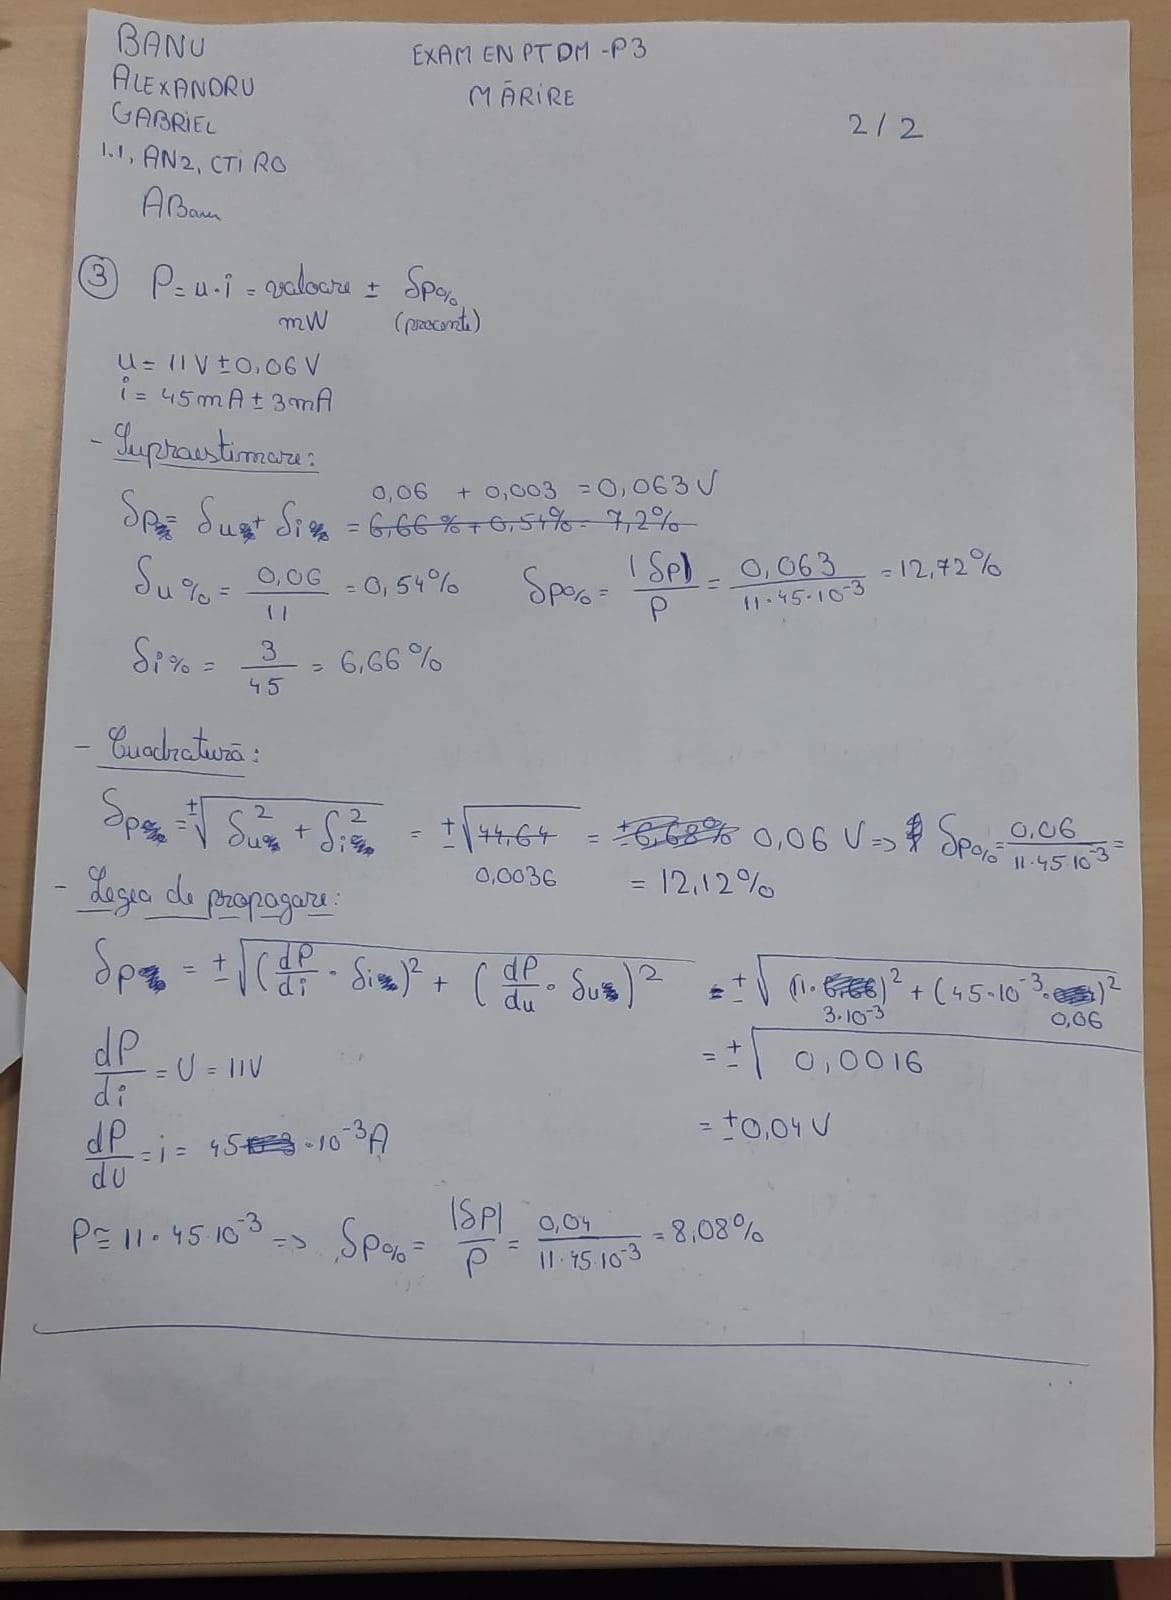 BANU
EXAMEN PTDM -P3
ALEXANDRU
MĂRIRE
GABRIEL
2/2
1.1, AN2, CTI RO
ABanu
③ P= u·i = valoare ± δp%
mW (procente)
u= 11V ± 0,06V
i = 45mA ± 3mA
- Supraestimare:
0,06 + 0,003 = 0,063V
δp = δu + δi = 6,66% + 0,54% = 7,2%
δu% = 0,06/11 = 0,54% δp% = |δp|/P = 0,063/11·45·10⁻³ = 12,72%
δi% = 3/45 = 6,66%
- Cuadratură:
δp = ±√δu² + δi² = ±√44,64 = ±6,68% 0,06 V => δp% = 0,06/11·45·10⁻³ =
0,0036 = 12,12%
- Legea de propagare:
δp = ±√(dP/di · δi)² + (dP/du · δu)² = ±√(11· )² + (45·10⁻³· )²
3·10⁻³ 0,06
dP/di = U = 11V = ±√0,0016
dP/dU = i = 45 ·10⁻³A = ±0,04V
P ≅ 11·45·10⁻³ => δp% = |δp|/P = 0,04/11·45·10⁻³ = 8,08%